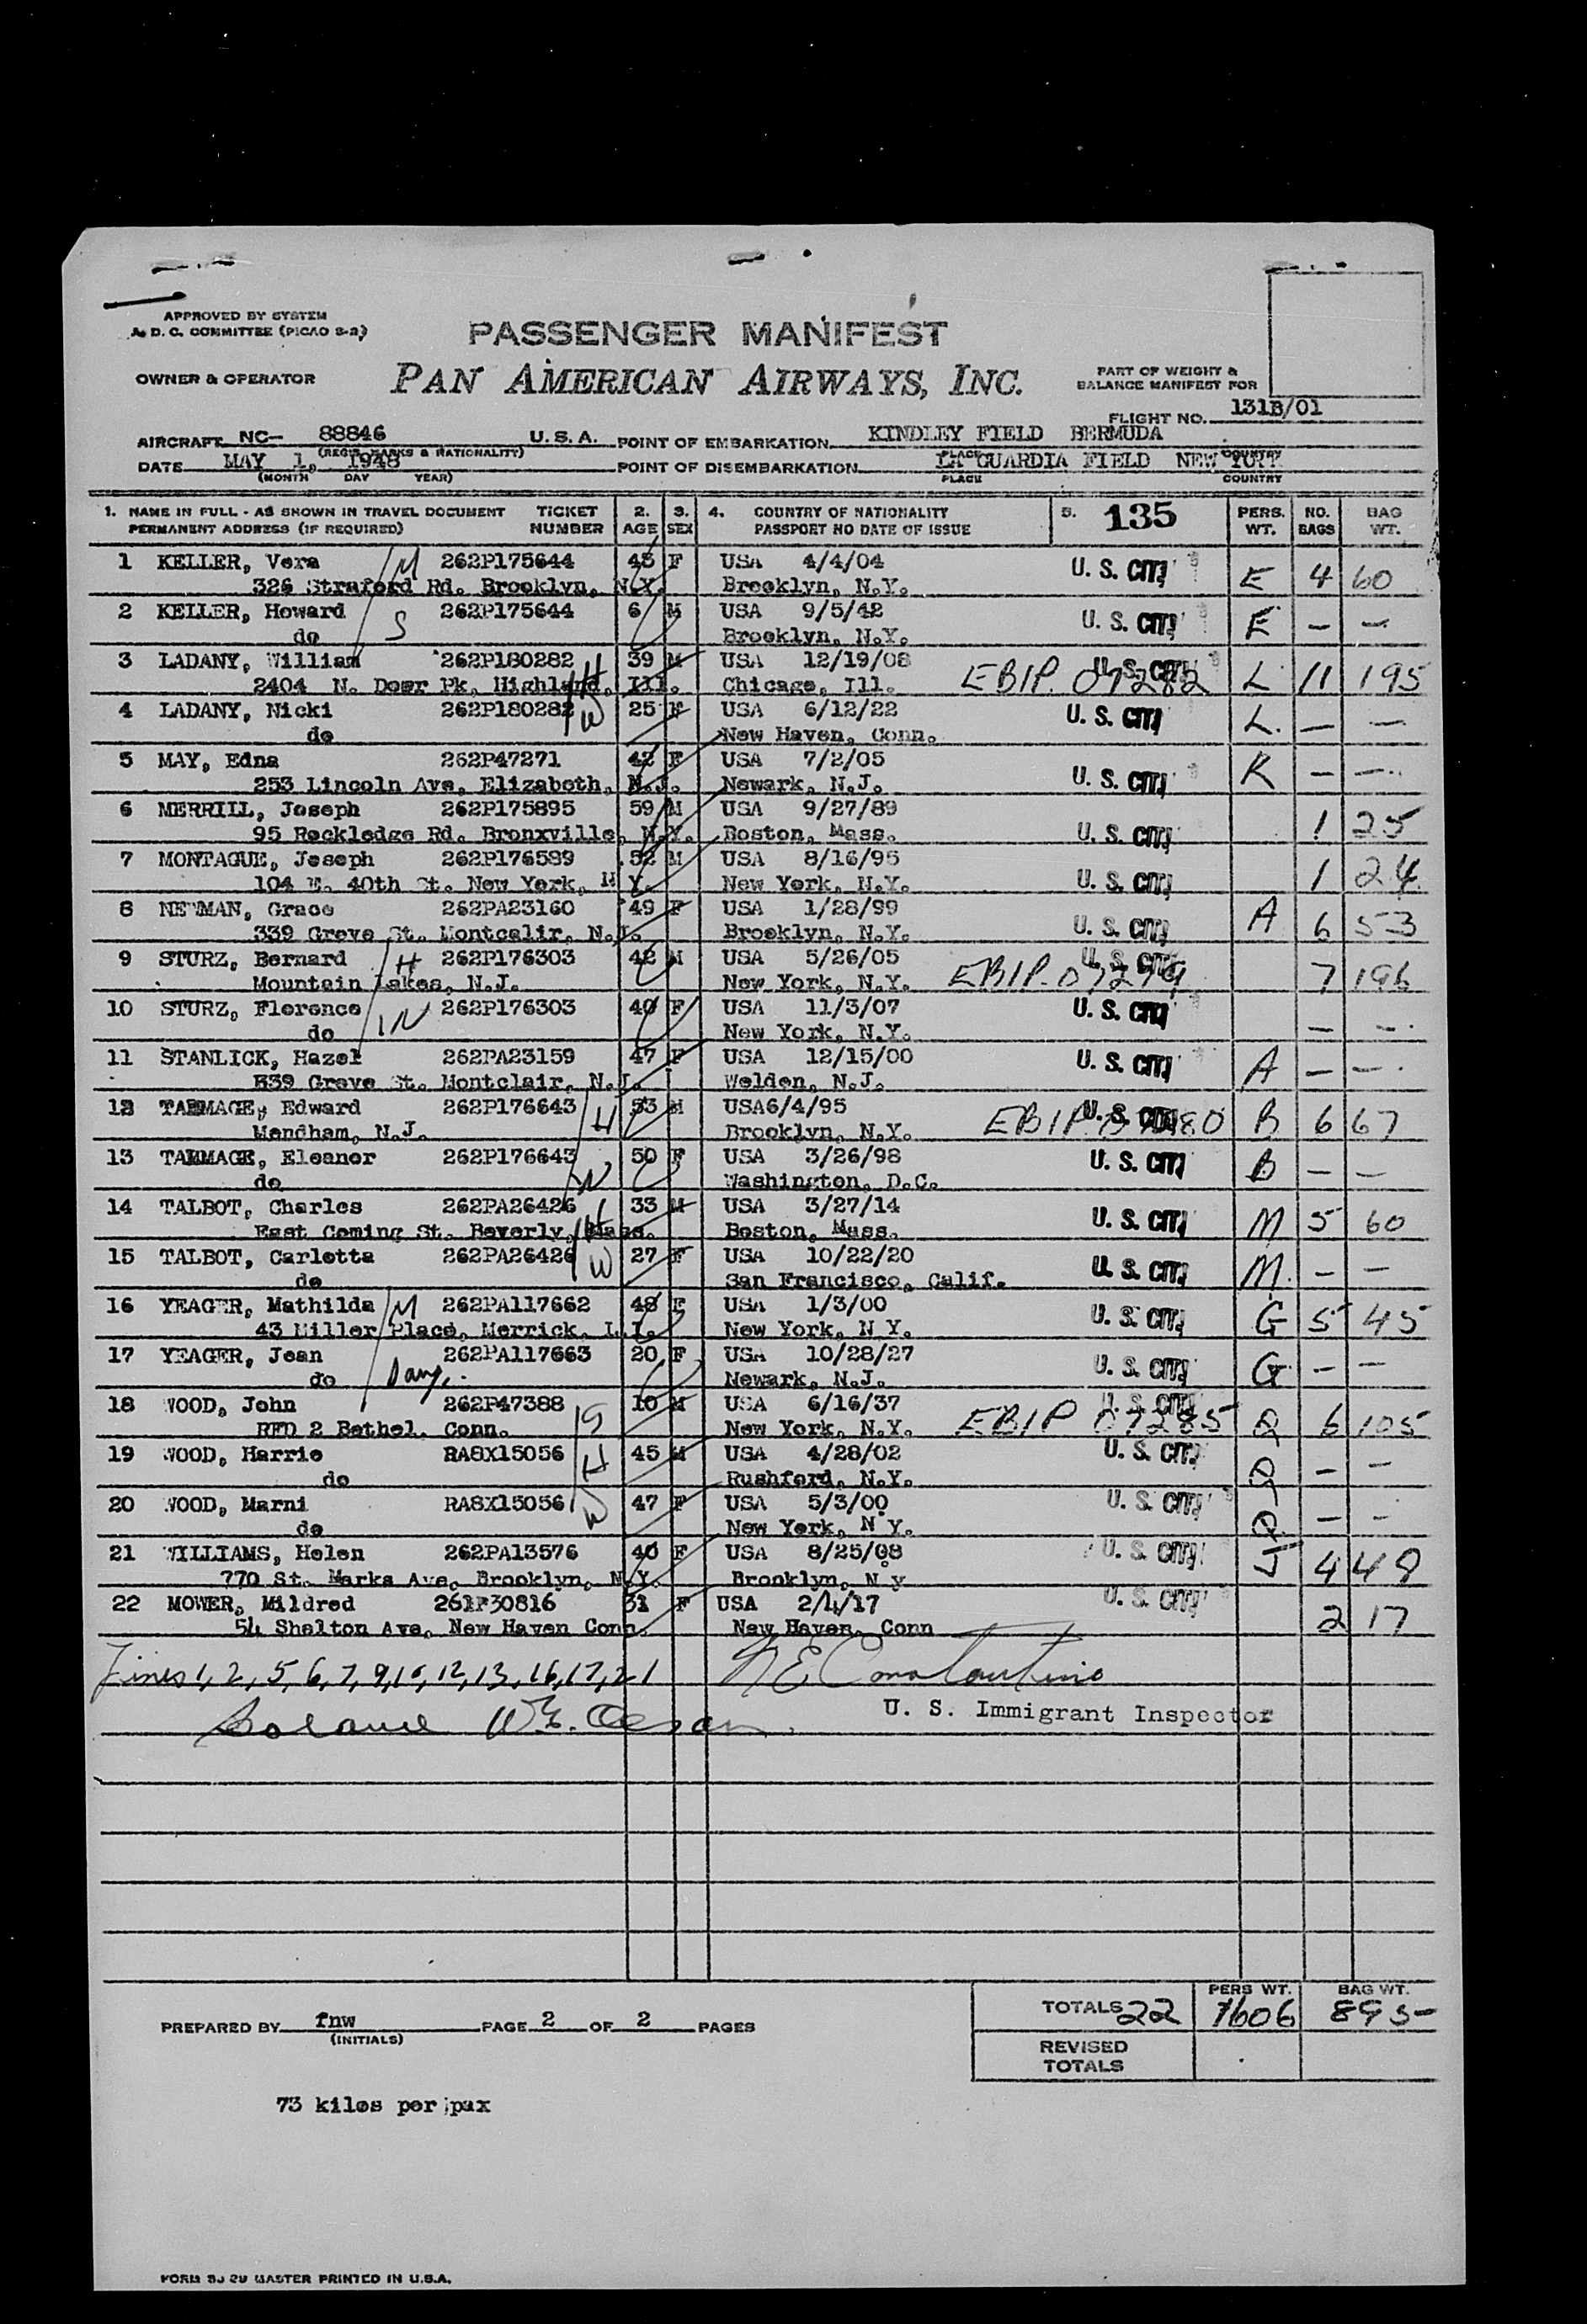 APPROVED BY SYSTEM
A. D. C. COMMITTEE (PICAO S-2)
PASSENGER MANIFEST
OWNER & OPERATOR PAN AMERICAN AIRWAYS, INC.
PART OF WEIGHT &
BALANCE MANIFEST FOR
FLIGHT NO. 131B/01
AIRCRAFT NC- 88846 U. S. A. POINT OF EMBARKATION KINDLEY FIELD BERMUDA
(REGIS. MARKS & NATIONALITY) PLACE COUNTRY
DATE MAY 1, 1948 POINT OF DISEMBARKATION LA GUARDIA FIELD NEW YORK
(MONTH DAY YEAR) PLACE COUNTRY
1. NAME IN FULL - AS SHOWN IN TRAVEL DOCUMENT TICKET 2. 3. 4. COUNTRY OF NATIONALITY 5. 135 PERS. NO. BAG
PERMANENT ADDRESS (IF REQUIRED) NUMBER AGE SEX PASSPORT NO DATE OF ISSUE WT. BAGS WT.
1 KELLER, Vera M 262P175644 43 F USA 4/4/04 U. S. CIT. E 4 60
326 Straford Rd. Brooklyn, N.Y. Brooklyn, N.Y.
2 KELLER, Howard S 262P175644 6 M USA 9/5/42 U. S. CIT. E — —
do Brooklyn, N.Y.
3 LADANY, William 262P180282 H 39 M USA 12/19/08 U. S. CIT. L 11 195
2404 N. Deer Pk, Highland, Ill. Chicago, Ill. EBIP 07282
4 LADANY, Nicki 262P180282 W 25 F USA 6/12/22 U. S. CIT. L. — —
do New Haven, Conn.
5 MAY, Edna 262P47271 42 F USA 7/2/05 U. S. CIT. K — —
253 Lincoln Ave, Elizabeth, N.J. Newark, N.J.
6 MERRILL, Joseph 262P175895 59 M USA 9/27/89 U. S. CIT. 1 25
95 Rockledge Rd. Bronxville, N.Y. Boston, Mass.
7 MONTAGUE, Joseph 262P176599 52 M USA 8/16/95 U. S. CIT. 1 24
104 E. 40th St. New York, N Y. New York, N.Y.
8 NEWMAN, Grace 262PA23160 49 F USA 1/28/99 U. S. CIT. A 6 53
339 Grove St. Montcalir, N.J. Brooklyn, N.Y.
9 STURZ, Bernard H 262P176303 42 M USA 5/26/05 U. S. CIT. 7 196
Mountain Lakes, N.J. New York, N.Y. EBIP 07279
10 STURZ, Florence W 262P176303 40 F USA 11/3/07 U. S. CIT. — —
do New York, N.Y.
11 STANLICK, Hazel 262PA23159 47 F USA 12/15/00 U. S. CIT. A — —
339 Grove St. Montclair, N.J. Welden, N.J.
12 TALMAGE, Edward 262P176643 H 53 M USA6/4/95 U. S. CIT. B 6 67
Mendham, N.J. Brooklyn, N.Y. EBIP
13 TALMAGE, Eleanor 262P176643 W 50 F USA 3/26/98 U. S. CIT. B — —
do Washington, D.C.
14 TALBOT, Charles 262PA26426 H 33 M USA 3/27/14 U. S. CIT. M 5 60
East Coming St. Beverly, Mass. Boston, Mass.
15 TALBOT, Carlotta 262PA26426 W 27 F USA 10/22/20 U. S. CIT. M. — —
do San Francisco, Calif.
16 YEAGER, Mathilda M 262PA117662 48 F USA 1/3/00 U. S. CIT. G 5 45
43 Miller Place, Merrick, L.I. New York, N Y.
17 YEAGER, Jean 262PA117663 20 F USA 10/28/27 U. S. CIT. G — —
do Dau. Newark, N.J.
18 WOOD, John 262P47388 S 10 M USA 6/16/37 U. S. CIT. Q 6 105
RFD 2 Bethel, Conn. New York, N.Y. EBIP 07285
19 WOOD, Harrie RA8X15056 H 45 M USA 4/28/02 U. S. CIT. Q — —
do Rushford, N.Y.
20 WOOD, Marni RA8X15056 W 47 F USA 5/3/00 U. S. CIT. Q — —
do New York, N Y.
21 WILLIAMS, Helen 262PA13576 40 F USA 8/25/08 U. S. CIT. J 4 48
770 St. Marks Ave, Brooklyn, N.Y. Brooklyn, N y
22 MOWER, Mildred 261P30816 31 F USA 2/4/17 U. S. CIT. 2 17
54 Shelton Ave, New Haven Conn. New Haven, Conn
Lines 1, 2, 5, 6, 7, 9, 10, 12, 13, 16, 17, 21 N E Constantino
Balance U. S. Immigrant Inspector
TOTALS 22 PERS WT. 1606 BAG WT. 895
PREPARED BY fnw PAGE 2 OF 2 PAGES
(INITIALS)
REVISED
TOTALS
73 kilos per pax
FORM MASTER PRINTED IN U.S.A.